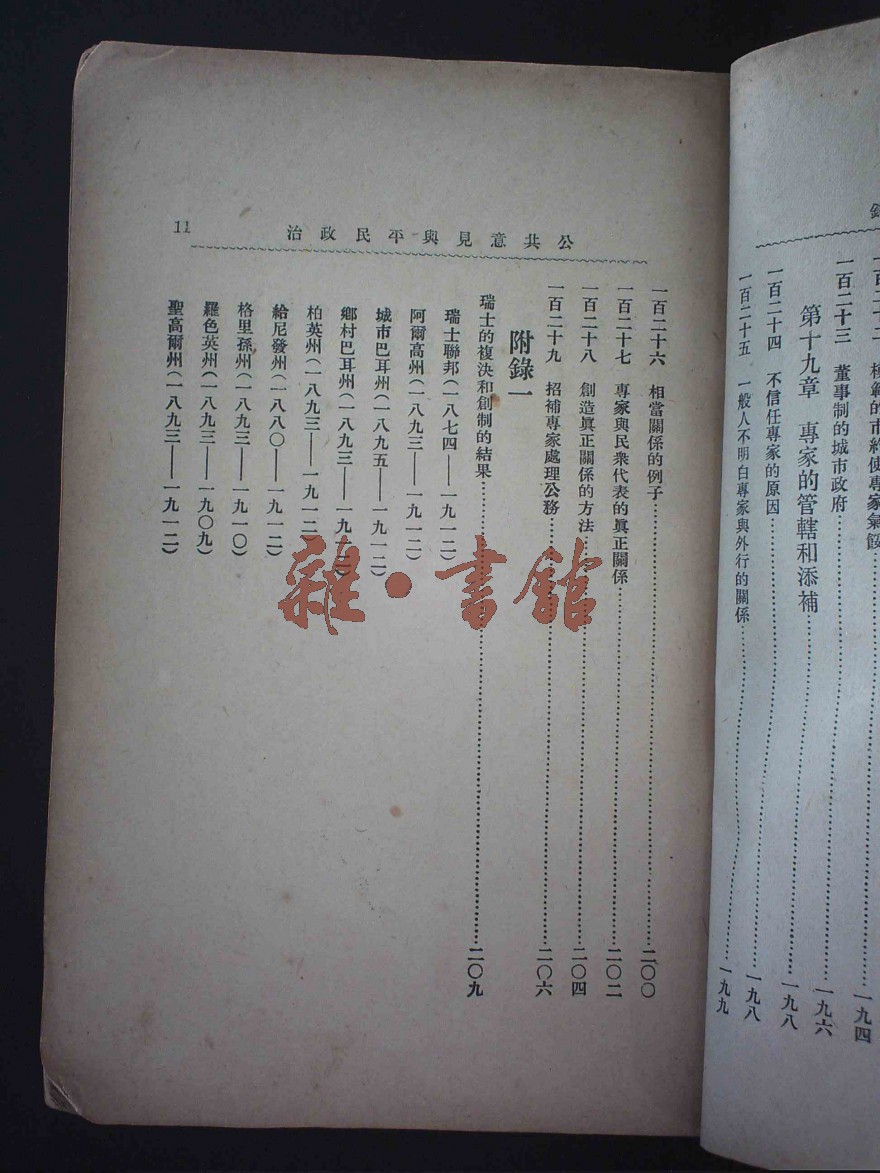 一百二十三　董事制的城市政府……一九六
第十九章　專家的管轄和添補……一九八
一百二十四　不信任專家的原因……一九八
一百二十五　一般人不明白專家與外行的關係……一九九
公共意見與平民政治
11
一百二十六　相當關係的例子……二〇〇
一百二十七　專家與民衆代表的眞正關係……二〇二
一百二十八　創造眞正關係的方法……二〇四
一百二十九　招補專家處理公務……二〇六
附錄一
瑞士的複決和創制的結果……二〇九
瑞士聯邦(一八七四——一九一二)
阿爾高州(一八九三——一九一二)
城市巴耳州(一八九五——一九一二)
鄉村巴耳州(一八九三——一九一二)
柏英州(一八九三——一九一二)
給尼發州(一八八〇——一九一二)
格里孫州(一八九三——一九一〇)
羅色英州(一八九三——一九〇九)
聖高爾州(一八九三——一九一二)
雜·書館